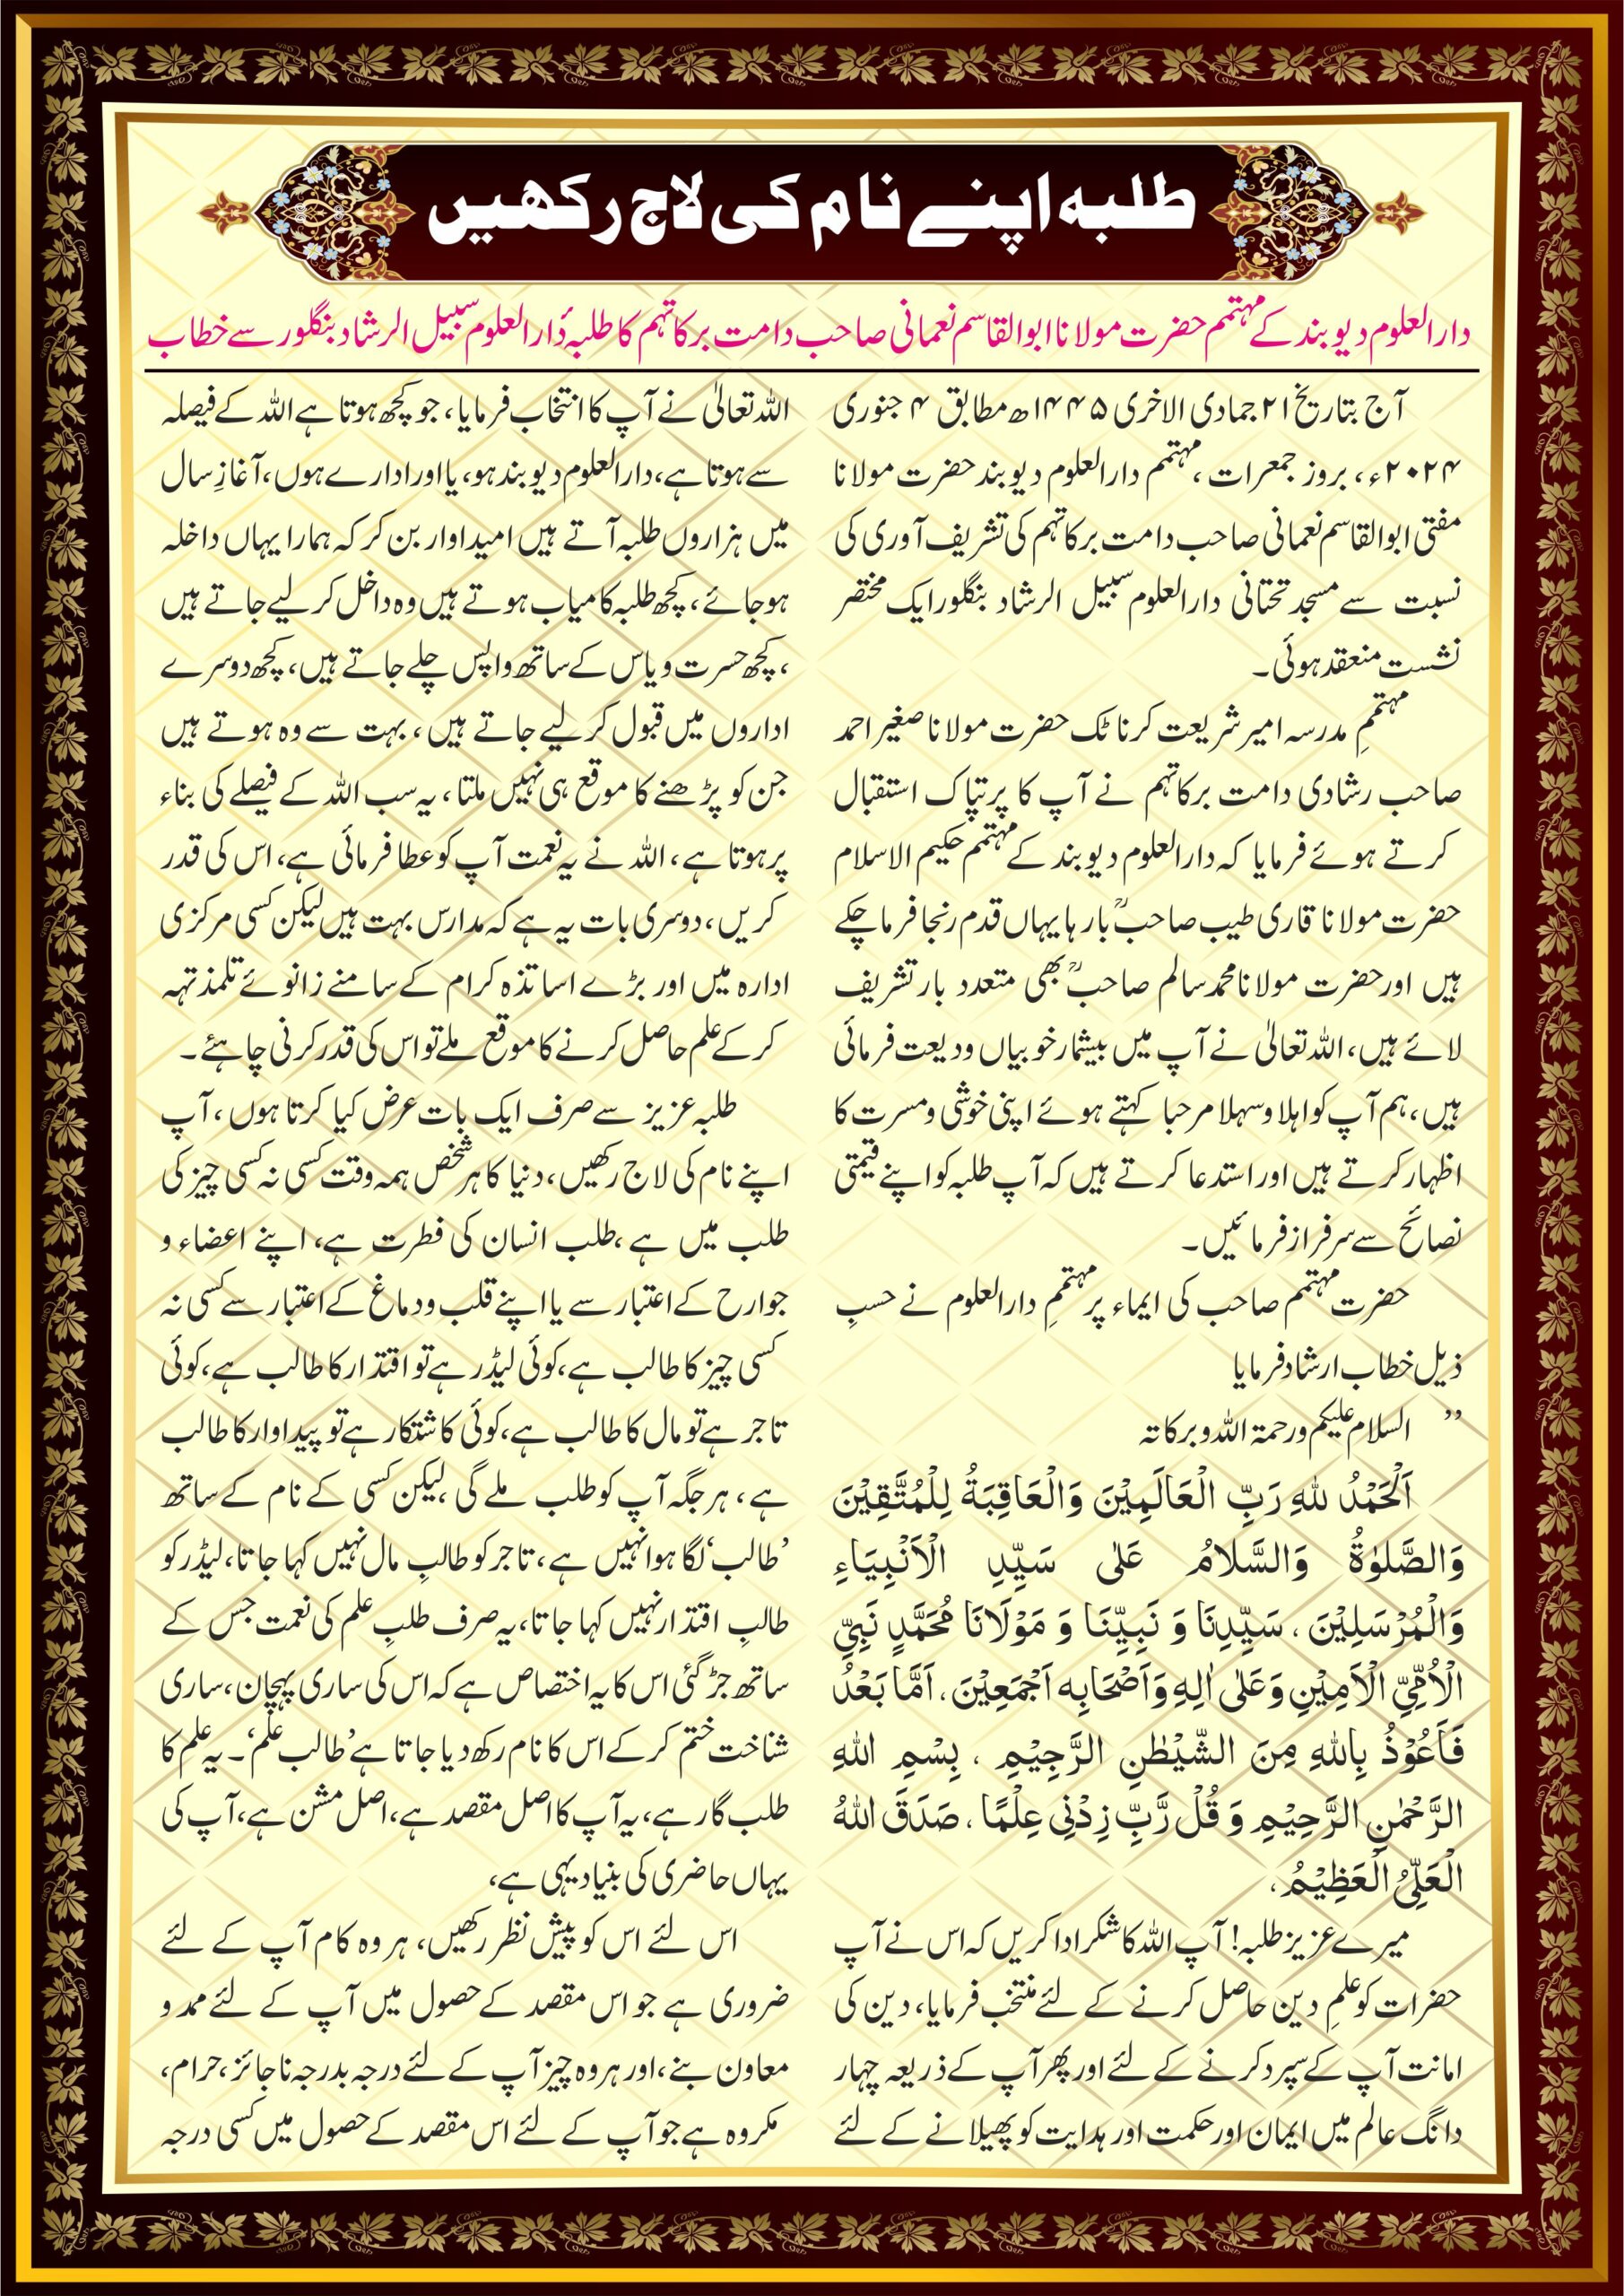 طلبہ اپنے نام کی لاج رکھیں
دارالعلوم دیوبند کے مہتمم حضرت مولانا ابوالقاسم نعمانی صاحب دامت برکاتہم کا طلبۂ دارالعلوم سبیل الرشاد بنگلور سے خطاب
آج بتاریخ ۲۱ جمادی الاخری ۱۴۴۵ھ مطابق ۴ جنوری
۲۰۲۴ء، بروز جمعرات، مہتمم دارالعلوم دیوبند حضرت مولانا
مفتی ابوالقاسم نعمانی صاحب دامت برکاتہم کی تشریف آوری کی
نسبت سے مسجد تحتانی دارالعلوم سبیل الرشاد بنگلور ایک مختصر
نشست منعقد ہوئی۔
مہتممِ مدرسہ امیر شریعت کرناٹک حضرت مولانا صغیر احمد
صاحب رشادی دامت برکاتہم نے آپ کا پرتپاک استقبال
کرتے ہوئے فرمایا کہ دارالعلوم دیوبند کے مہتمم حکیم الاسلام
حضرت مولانا قاری طیب صاحبؒ بارہا یہاں قدم رنجا فرماچکے
ہیں اور حضرت مولانا محمد سالم صاحبؒ بھی متعدد بار تشریف
لائے ہیں، اللہ تعالیٰ نے آپ میں بیشمار خوبیاں ودیعت فرمائی
ہیں، ہم آپ کو اہلا وسہلا مرحبا کہتے ہوئے اپنی خوشی ومسرت کا
اظہار کرتے ہیں اور استدعا کرتے ہیں کہ آپ طلبہ کو اپنے قیمتی
نصائح سے سرفراز فرمائیں۔
حضرت مہتمم صاحب کی ایماء پر مہتممِ دارالعلوم نے حسبِ
ذیل خطاب ارشاد فرمایا
’’ السلام علیکم ورحمۃ اللہ وبرکاتہ
اَلْحَمْدُ لِلّٰہِ رَبِّ الْعَالَمِیْنَ وَالْعَاقِبَۃُ لِلْمُتَّقِیْنَ
وَالصَّلٰوۃُ وَالسَّلَامُ عَلٰی سَیِّدِ الْاَنْبِیَاءِ
وَالْمُرْسَلِیْنَ ، سَیِّدِنَا وَ نَبِیِّنَا وَ مَوْلَانَا مُحَمَّدٍ نَبِیِّ
الْاُمِّیِّ الْاَمِیْنِ وَعَلٰی اٰلِہِ وَاَصْحَابِہ اَجْمَعِیْنَ، اَمَّا بَعْدُ
فَاَعُوْذُ بِاللہِ مِنَ الشَّیْطٰنِ الرَّجِیْمِ ، بِسْمِ اللہِ
الرَّحْمٰنِ الرَّحِیْمِ وَ قُلْ رَّبِّ زِدْنِی عِلْمًا ، صَدَقَ اللہُ
الْعَلِیُّ الْعَظِیْمُ،
میرے عزیز طلبہ! آپ اللہ کا شکر ادا کریں کہ اس نے آپ
حضرات کو علمِ دین حاصل کرنے کے لئے منتخب فرمایا، دین کی
امانت آپ کے سپرد کرنے کے لئے اور پھر آپ کے ذریعہ چہار
دانگ عالم میں ایمان اور حکمت اور ہدایت کو پھیلانے کے لئے
اللہ تعالیٰ نے آپ کا انتخاب فرمایا، جو کچھ ہوتا ہے اللہ کے فیصلہ
سے ہوتا ہے، دارالعلوم دیوبند ہو، یا اور ادارے ہوں، آغازِ سال
میں ہزاروں طلبہ آتے ہیں امیداوار بن کر کہ ہمارا یہاں داخلہ
ہوجائے، کچھ طلبہ کامیاب ہوتے ہیں وہ داخل کر لیے جاتے ہیں
، کچھ حسرت ویاس کے ساتھ واپس چلے جاتے ہیں، کچھ دوسرے
اداروں میں قبول کر لیے جاتے ہیں، بہت سے وہ ہوتے ہیں
جن کو پڑھنے کا موقع ہی نہیں ملتا، یہ سب اللہ کے فیصلے کی بناء
پر ہوتا ہے، اللہ نے یہ نعمت آپ کو عطا فرمائی ہے، اس کی قدر
کریں، دوسری بات یہ ہے کہ مدارس بہت ہیں لیکن کسی مرکزی
ادارہ میں اور بڑے اساتذہ کرام کے سامنے زانوئے تلمذ تہہ
کر کے علم حاصل کرنے کا موقع ملے تو اس کی قدر کرنی چاہئے۔
طلبہ عزیز سے صرف ایک بات عرض کیا کرتا ہوں، آپ
اپنے نام کی لاج رکھیں، دنیا کا ہر شخص ہمہ وقت کسی نہ کسی چیز کی
طلب میں ہے، طلب انسان کی فطرت ہے، اپنے اعضاء و
جوارح کے اعتبار سے یا اپنے قلب ودماغ کے اعتبار سے کسی نہ
کسی چیز کا طالب ہے، کوئی لیڈر ہے تو اقتدار کا طالب ہے، کوئی
تاجر ہے تو مال کا طالب ہے، کوئی کاشتکار ہے تو پیداوار کا طالب
ہے، ہر جگہ آپ کو طلب ملے گی، لیکن کسی کے نام کے ساتھ
’طالب‘ لگا ہوا نہیں ہے، تاجر کو طالبِ مال نہیں کہا جاتا، لیڈر کو
طالبِ اقتدار نہیں کہا جاتا، یہ صرف طلبِ علم کی نعمت جس کے
ساتھ جڑ گئی اس کا یہ اختصاص ہے کہ اس کی ساری پہچان، ساری
شناخت ختم کر کے اس کا نام رکھ دیا جاتا ہے ’طالب علم‘۔ یہ علم کا
طلب گار ہے، یہ آپ کا اصل مقصد ہے، اصل مشن ہے، آپ کی
یہاں حاضری کی بنیاد یہی ہے،
اس لئے اس کو پیش نظر رکھیں، ہر وہ کام آپ کے لئے
ضروری ہے جو اس مقصد کے حصول میں آپ کے لئے ممد و
معاون بنے، اور ہر وہ چیز آپ کے لئے درجہ بدرجہ ناجائز، حرام،
مکروہ ہے جو آپ کے لئے اس مقصد کے حصول میں کسی درجہ